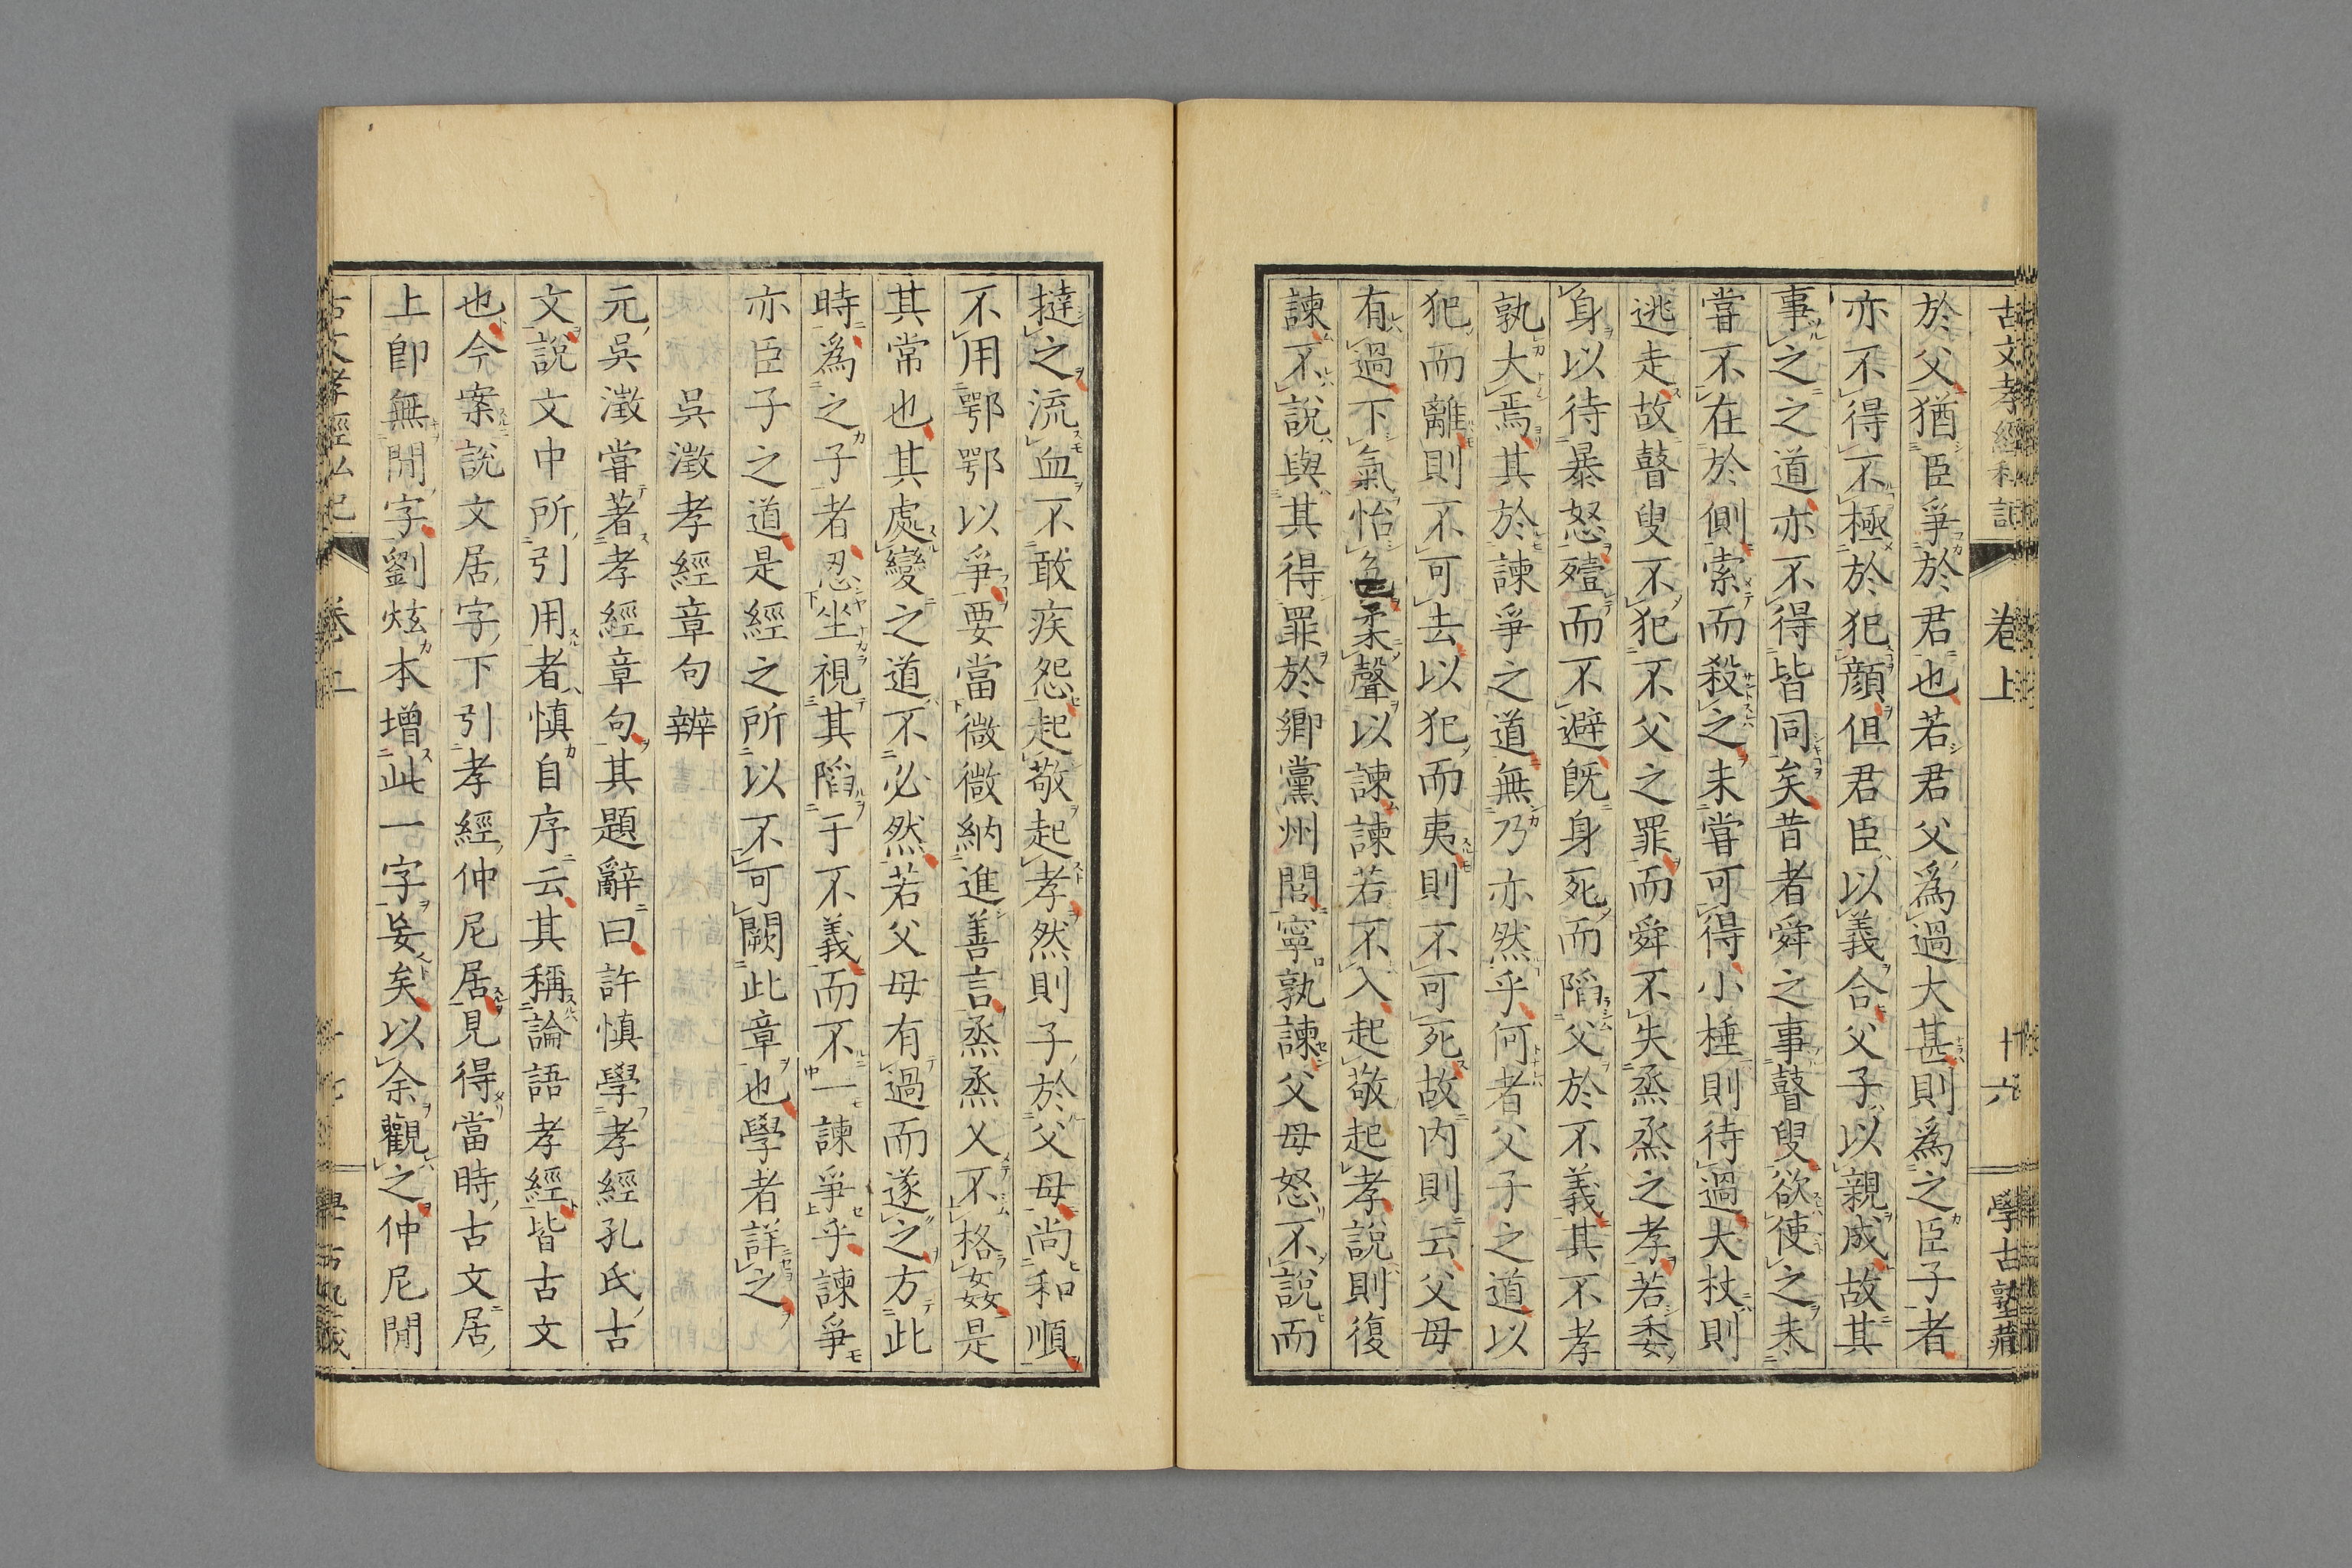 古文孝經私記 卷上 十六 學古塾藏
於父猶臣爭於君也若君父爲過大甚則爲之臣子者
亦不得不極於犯顏但君臣以義合父子以親成故其
事之之道亦不得皆同矣昔者舜之事瞽叟欲使之未
嘗不在於側索而殺之未嘗可得小棰則待過大杖則
逃走故瞽叟不犯不父之罪而舜不失烝烝之孝若委
身以待暴怒殪而不避旣身死而陷父於不義其不孝
孰大焉其於諫爭之道無乃亦然乎何者父子之道以
犯而離則不可去以犯而夷則不可死故内則云父母
有過下氣怡色柔聲以諫諫若不入起敬起孝說則復
諫不說與其得罪於鄉黨州閭寧孰諫父母怒不說而
撻之流血不敢疾怨起敬起孝然則子於父母尚和順
不用鄂鄂以爭要當微微納進善言烝烝乂不格姦是
其常也其處變之道不必然若父母有過而遂之方此
時爲之子者忍坐視其陷于不義而不一諫爭乎諫爭
亦臣子之道是經之所以不可闕此章也學者詳之
吳澂孝經章句辨
元吳澂嘗著孝經章句其題辭曰許慎學孝經孔氏古
文說文中所引用者慎自序云其稱論語孝經皆古文
也今案說文居字下引孝經仲尼居見得當時古文居
上卽無閒字劉炫本增此一字妄矣以余觀之仲尼閒
古文孝經私記 卷上